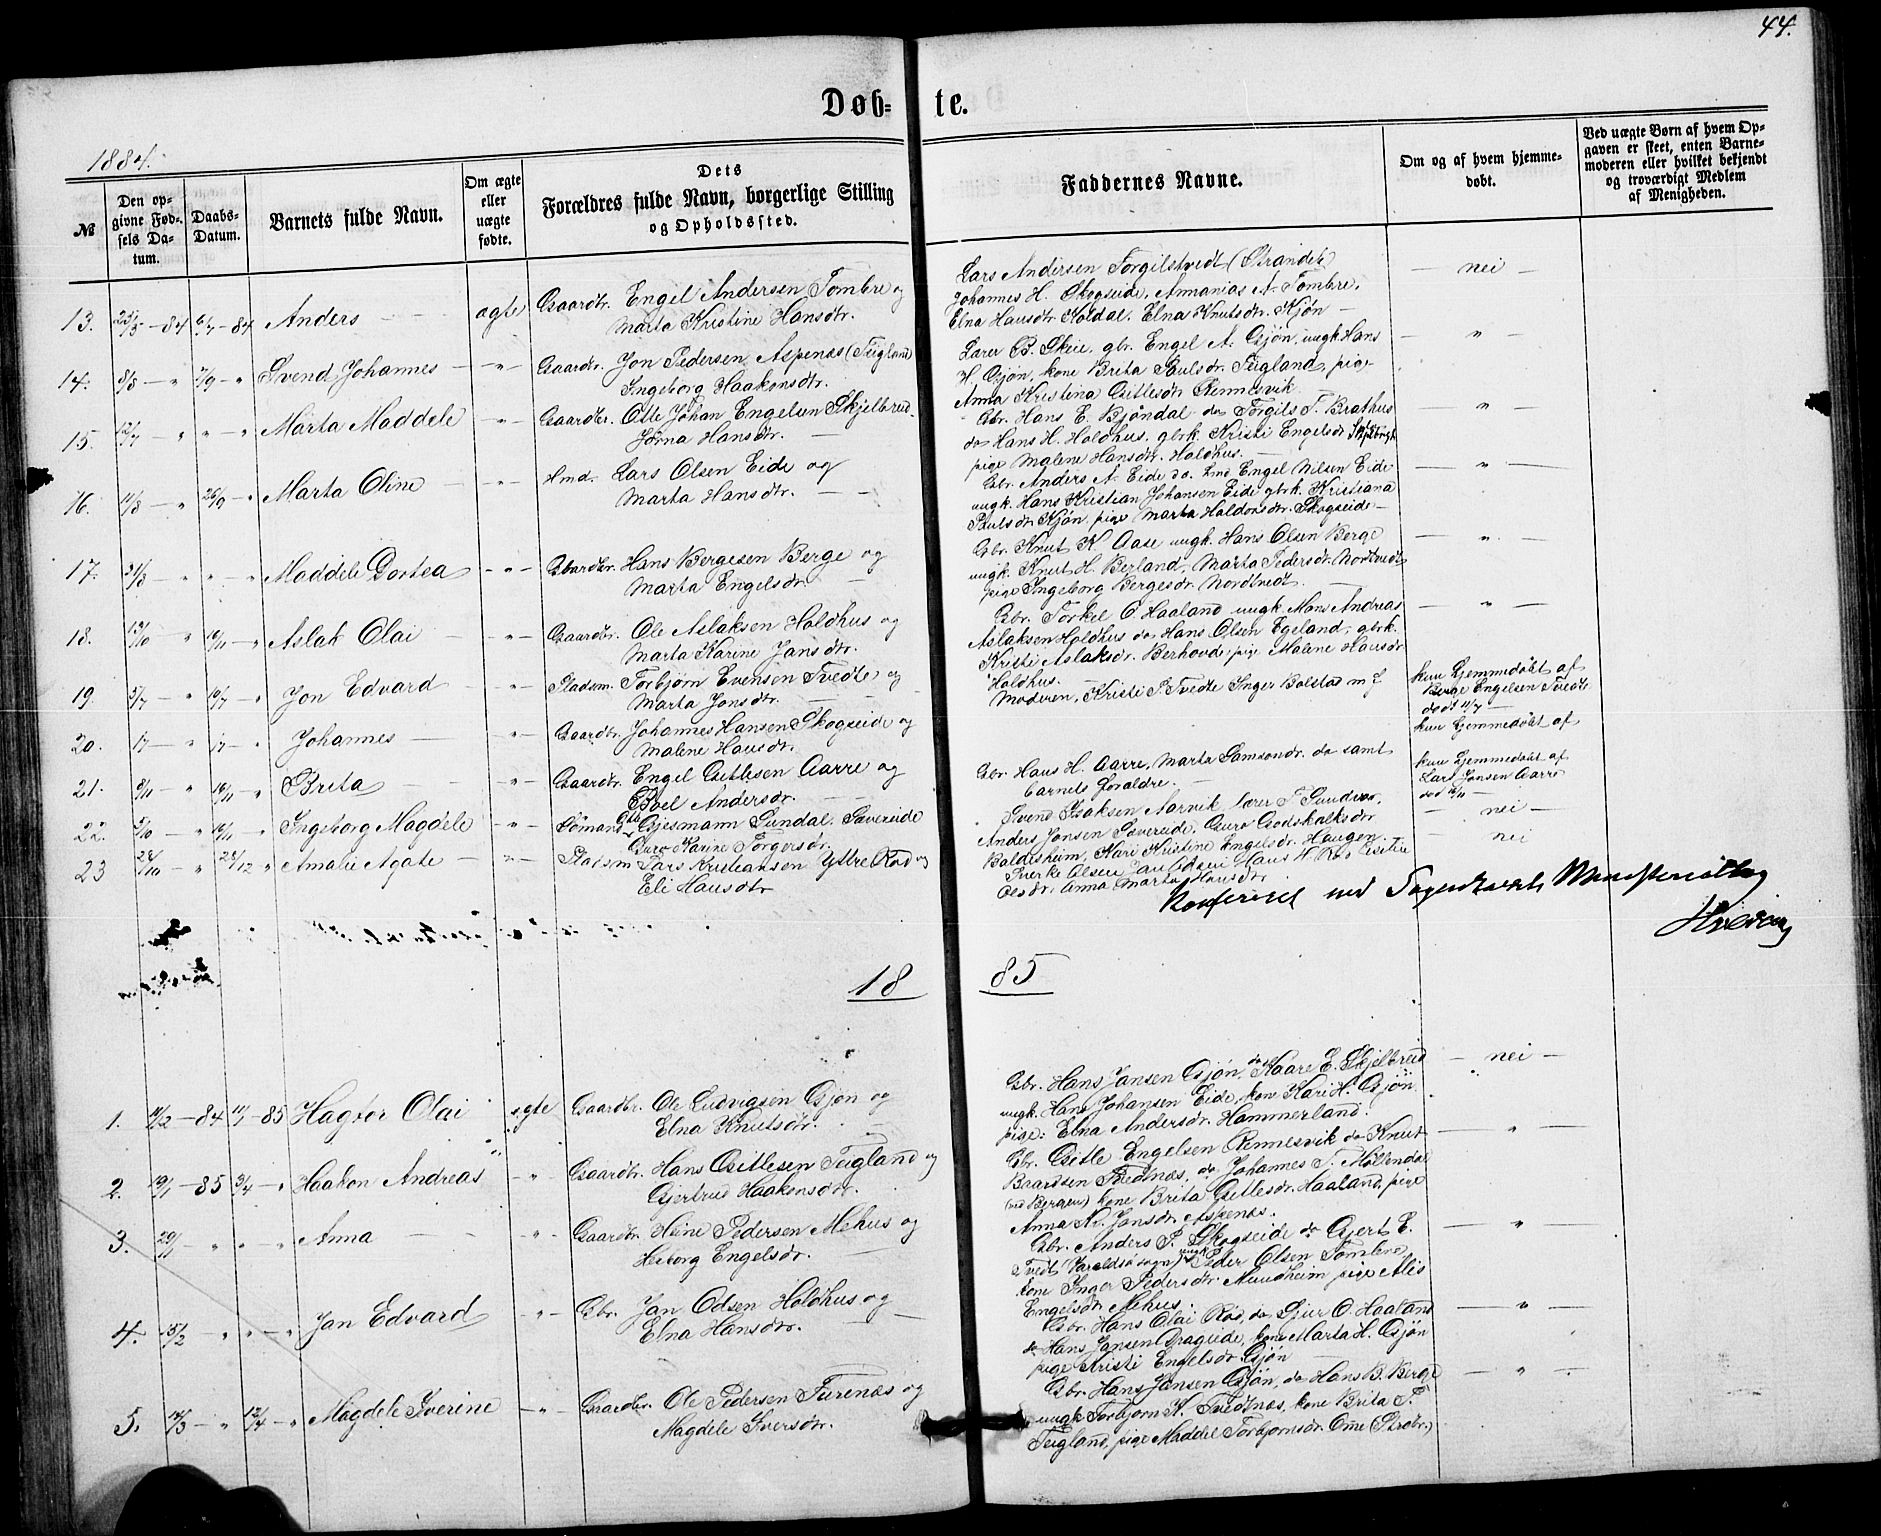 44.
Døb- te.
1884.
№
Den opgivne Fødsels Datum.
Daabs-Datum.
Barnets fulde Navn.
Om ægte eller uægte fødte.
Dets Forældres fulde Navn, borgerlige Stilling og Opholdssted.
Faddernes Navne.
Om og af hvem hjemmedøbt.
Ved uægte Børn af hvem Opgaven er skeet, enten Barnemoderen eller hvilket bekjendt og troværdigt Medlem af Menigheden.
13. – 84 6/7 – 84 Anders ægte Gaardbr. Engel Andersen Tombre og
Marta Kristine Hansdtr.
Lars Andersen Torgilstvedt (Strandeb)
Johannes H. Skogseide, Annanias A. Tombre,
Elna Hansdtr. Holdal. Elna Knutsdtr. Gjøn –
– nei –
14. 8/8 – " 7/9 – " Svend Johannes – " – Gaardbr. Jon Pedersen Aspenæs (Teigland)
Ingeborg Haakonsdtr.
Lærer B. Skeie, gbr. Engel A. Gjøn, ungk. Hans
H. Gjøn, kone Brita Paulsdr. Teigland, pige
Anna Kristina Gitlesdtr Rennesvik
– " –
15. 12/7 – " " – " Marta Maddele – " – Gaardbr. Otte Johan Engelsen Skjelbreid
Jorna Hansdtr. –
Gbr. Hans E. Bjøndal do Torgils T. Brathus
do Hans H. Holdhus, gbrk. Kristi Engelsdr
pige Malene Hansdtr. Holdhus. –
– " –
16. 11/8 – " 26/9 – " Marta Oline – " – Hmd. Lars Olsen Eide og
Marta Hansdtr. –
Gbr. Anders A. Eide do. Hmd Engel Nilsen Eide
ungk. Hans Kristian Johansen Eide gbrk. Kristiana
Paulsdtr Gjøn, pige Marta Haldorsdtr. Skogseide –
– " –
17. 31/8 – " " – " Maddele Dortea – " – Gaardbr. Hans Bergesen Berge og
Marta Engelsdr. –
Gbr. Knut K Aase ungk. Hans Olsen Berge
ungk. Knut H. Berland, Marta Pedersdr. Nordtvedt
pige Ingeborg Bergesdr. Nordtvedt. –
– " –
18. 13/10 " 16/11 – " Aslak Olai – " – Gaardbr. Ole Aslaksen Holdhus og
Marta Karine Jansdtr.
Gbr. Torkel O. Haaland ungk. Mons Andreas
Aslaksen Holdhus do Hans Olsen Egeland, gbrk.
Kristi Aslaksdr. Berhovde, pige Malene Hansdr
Holdhus.
– " –
19. 5/7 – " 10/7 – " Jon Edvard – " – Pladsm. Torbjørn Evensen Tvedte og
Marta Jonsdtr. –
Moderen, Kristi P. Tvedte Inger Bolstad m f
kun hjemmedøbt af
Berge Engelsen Tvedte
død 11/7 –
20. 17 – " 17 – " Johannes – " – Gaardbr. Johannes Hansen Skogseide og
Malene Hansdtr.
kun hjemmedøbt af
21. 9/11 – " 16/11 – " Brita – " – Gaardbr. Engel Gitlesen Aarre og
Boel Andersdr. –
Gbr. Hans H. Aarre, Marta Samsondr. do samt
barnets forældre –
kun hjemmedøbt af
Lars Jansen Aarre
død 16/11 –
22. 5/10 – " 16/11 – " Ingeborg Magdele – " – Sømand Gjesmann Sundal. Sævereide
Guro Karine Torgersdr.
Svend Isaksen Aarvik lærer T. Sundvor,
Anders Jonsen Sævereide, Guro Godskalksdtr
Baldersheim, Kari Kristine Engelsdr. Haugen.
– nei –
23 28/10 – " 28/12 " Amalie Agate – " – Pladsm Lars Kristiansen Ytre Rød og
Eli Hansdtr
Sverke Olsen Jan Olsen Hans H. Rød
Olsdr. Anna Marta Hansdtr
– nei
Konfereret med Sogneprestens Ministerialbog
18 85
1. 11/12 – 84 11/1 – 85 Hagtor Olai ægte Gaardbr. Ole Ludvigsen Gjøn og
Elna Knutsdtr. –
Gbr. Hans Jansen Gjøn, do Kaare E. Skjelbreid
ungk. Hans Johansen Eide, kon Kari H. Gjøn,
pige: Elna Andersdr. Hammerland.
– nei –
2. 19/1 – 85 3/4 – " Haakon Andreas – " Gaardbr. Hans Gitlesen Teigland og
Gjertrud Haakonsdtr.
Gbr. Gitle Engelsen Rennesvik do Knut
Baardsen Tvedtnæs, do Johannes T. Møllendal
(ved Bergen) kone Brita Gitlesdr. Haaland, pige
Anna K. Jonsdr. Aspenæs.
– " –
3. 29/1 " " " Anna – " – Gaardbr. Heine Pedersen Mehus og
Herborg Engelsdr.
Gbr. Anders P. Skogseide do Gjert E.
Tvedt (Varaldsø sogn) ungk Peder Olsen Tombre,
kone Inger Pedersdtr. Mundheim pige Alis
Engelsdtr Mehus.
– " –
4. 15/2 – " " – " Jan Edvard – " – Gbr. Jan Odsen Holdhus og
Elna Hansdtr.
Gbr. Hans Olai Rød, do Gjer O. Haaland
do Hans Jansen Drageide, kone Marta H. Gjøn
pige Kristi Engelsdr Gjøn –
– " –
5. 14/3 – " 12/4 – " Magdele Iverine – " – Gaardbr. Ole Pedersen Furenæs og
Magdele Iversdtr.
Gbr. Hans Jansen Gjøn, do Hans B. Berge
ungk Torbjørn K. Tvedtnæs, kone Brita P.
Teigland, pige Maddel Torbjørnsdr. Ome (Strdbr.)
– " –